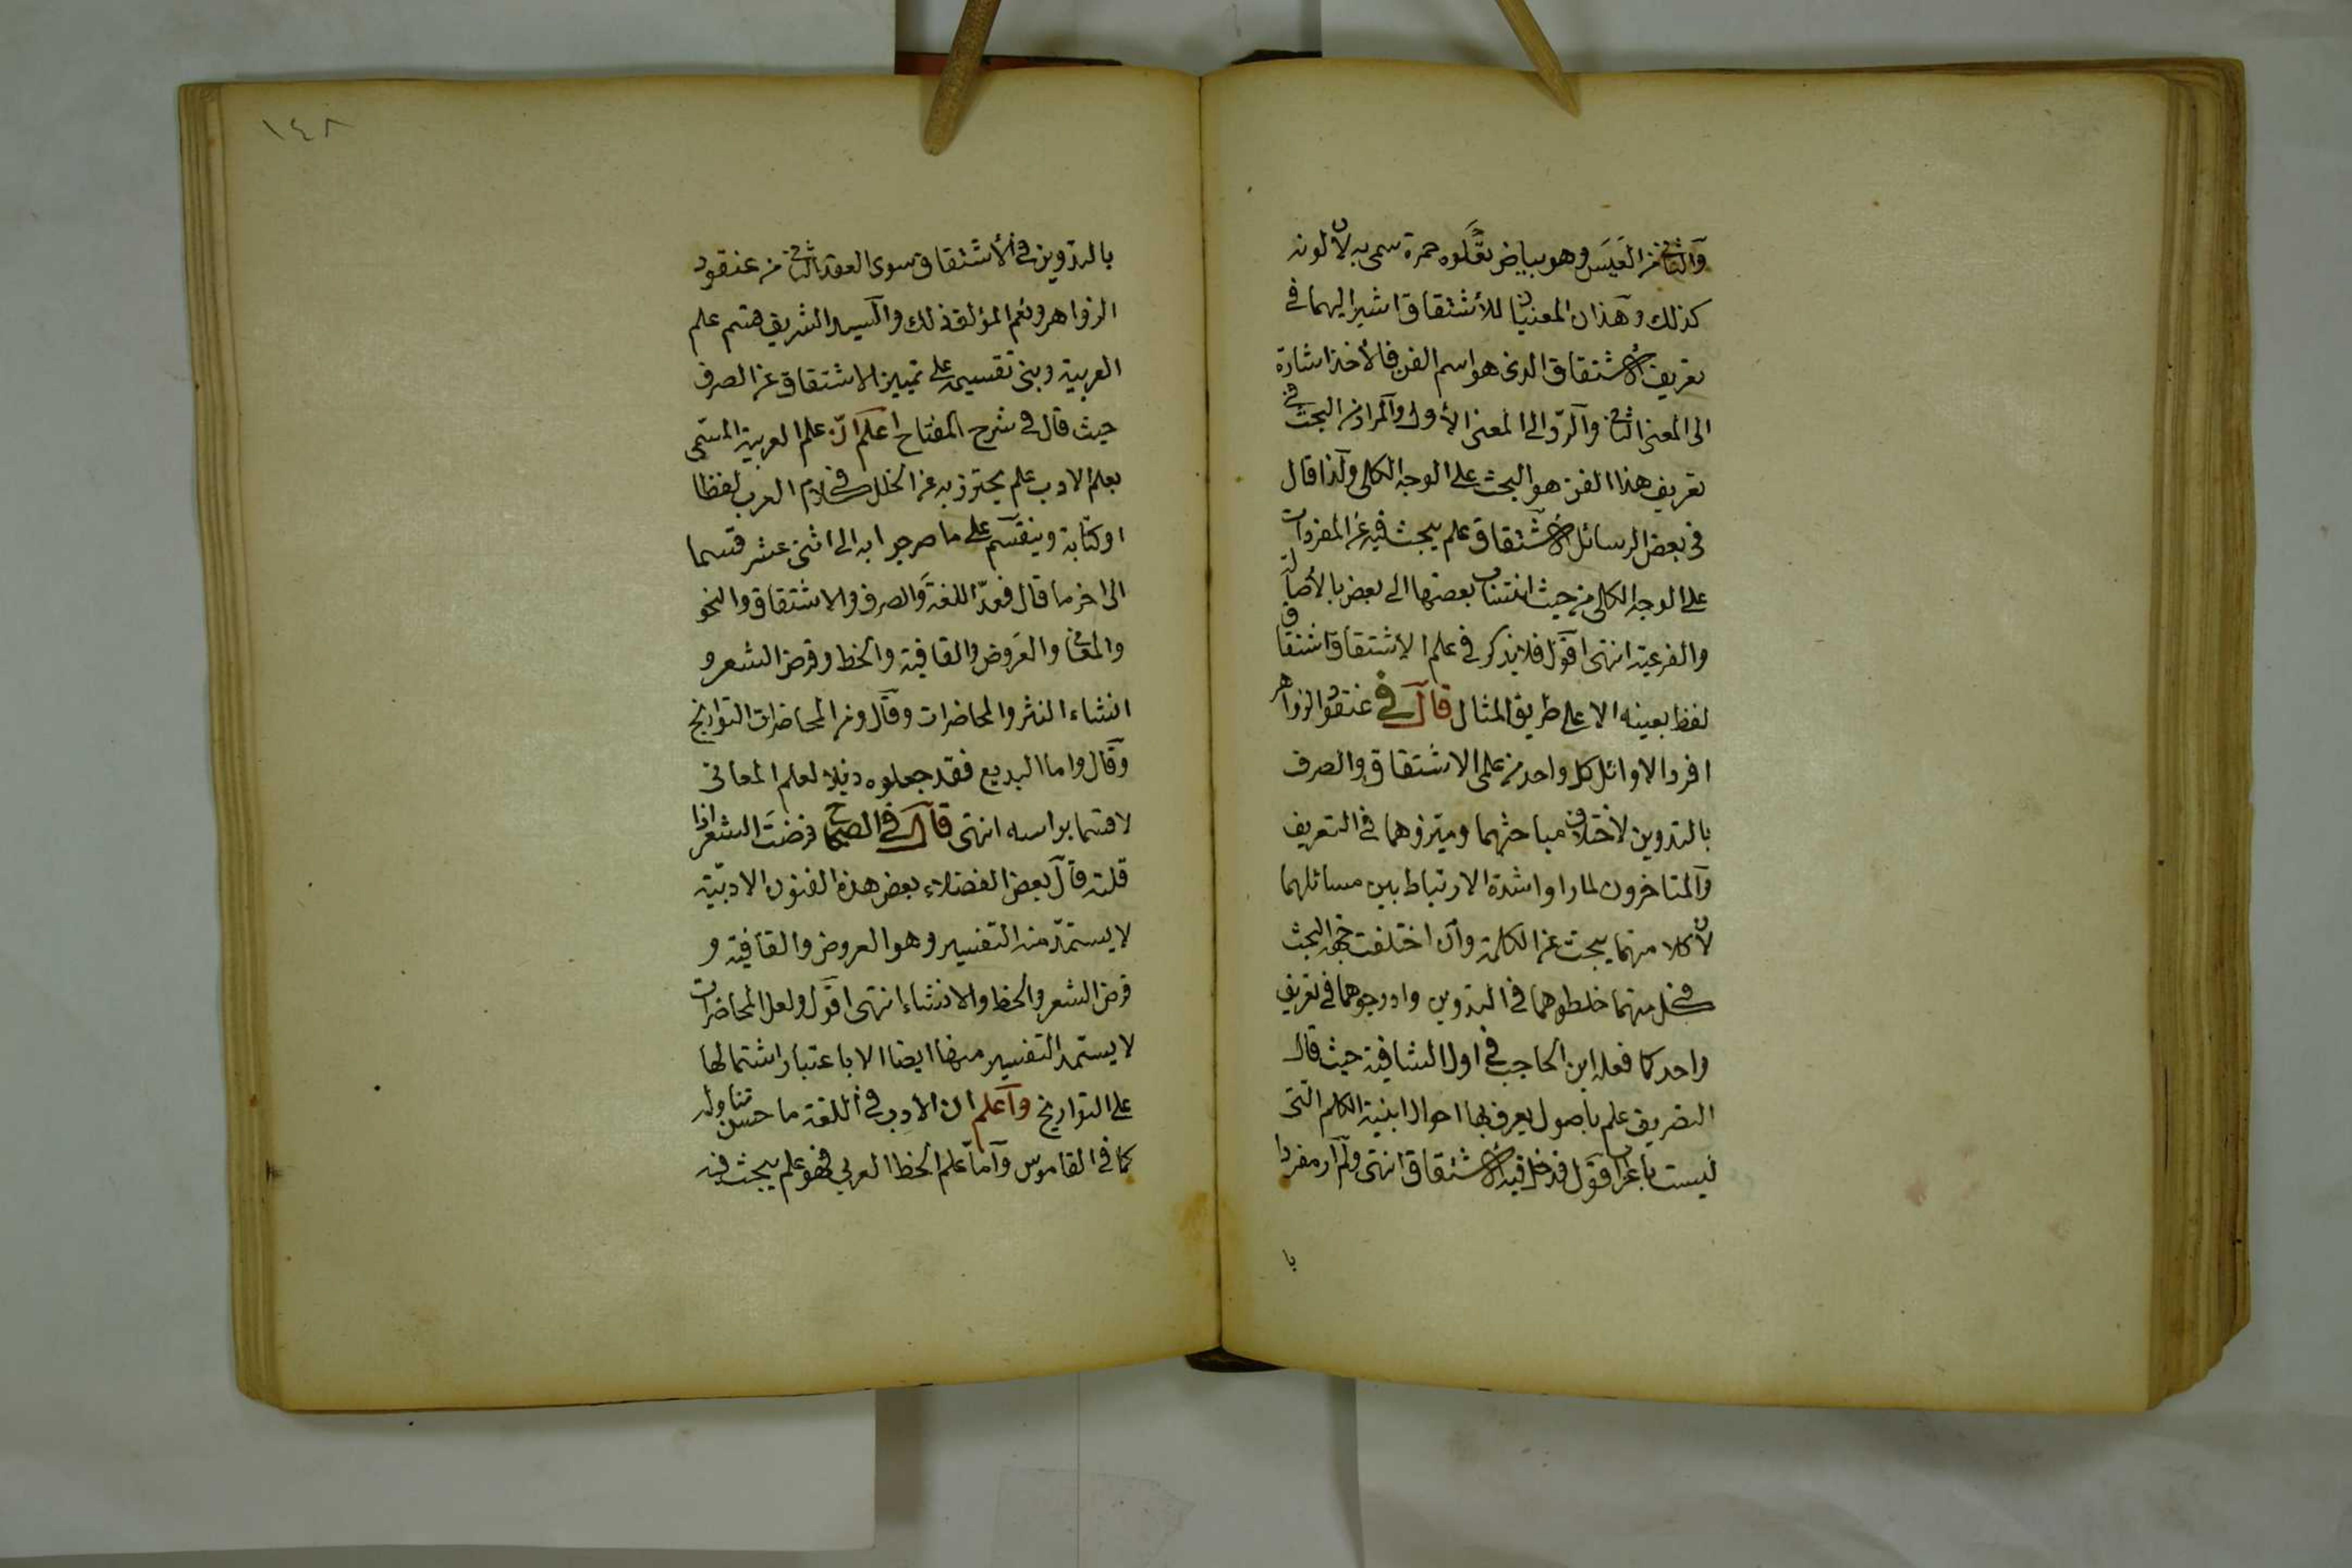 والثانى من العَيَس وهو بياض تعلوه حمرة سمى به لان لونه
كذلك وهذان المعنيان للأشتقاق اشير اليهما فى
تعريف الأشتقاق الذى هو اسم الفن فالأخذ اشارة
الى المعنى الثانى والردّ الى المعنى الأول والمراد من البحث فى
تعريف هذا الفن هو البحث على الوجه الكلى ولذا قال
فى بعض الرسائل الأشتقاق علم يبحث فيه عن المفردات
على الوجه الكلى من حيث انتساب بعضها الى بعض بالأصالة
والفرعية انتهى اقول فلا يذكر فى علم الاشتقاق اشتقاق
لفظ بعينه الا على طريق المثال قال فى عنقود الزواهر
افرد الاوائل كل واحد من علمى الاشتقاق والصرف
بالتدوين لاختلاف مباحثهما وميّزوهما فى التعريف
والمتاخرون لما راوا شدة الارتباط بين مسائلهما
لان كلا منهما يبحث عن الكلمة وان اختلفت جهة البحث
فى كل منهما خلطوهما فى التدوين وادرجوهما فى تعريف
واحد كما فعله ابن الحاجب فى اول الشافية حيث قال
التصريف علم بأصول يعرف بها احوال ابنية الكلم التى
ليست بأعراب اقول فدخل فيه الأشتقاق انتهى ولم ار مفردا
با
١٤٨
بالتدوين فى الأشتقاق سوى العقد الثانى من عنقود
الزواهر ونعم المؤلف ذلك والسيد الشريف قسم علم
العربية وبنى تقسيمه على تمييز الاشتقاق عن الصرف
حيث قال فى شرح المفتاح اعلم انّ علم العربية المسمّى
بعلم الادب علم يحترز به عن الخلل فى كلام العرب لفظا
او كتابة وينقسم على ما صرحوا به الى اثنى عشر قسما
الى اخر ما قال فعدّ اللغة والصرف والاشتقاق والنحو
والمعانى والعَروض والقافية والخط وقرض الشعر و
انشاء النثر والمحاضرات وقال ومن المحاضرات التواريخ
وقال واما البديع فقد جعلوه ذيلا لعلم المعانى
لا قسما براسه انتهى قال فى الصحاح قرضتَ الشعر اذا
قلته قال بعض الفضلاء بعض هذه الفنون الادبيّة
لا يستمدّ منه التفسير وهو العروض والقافية و
قرض الشعر والخط والانشاء انتهى اقول ولعل المحاضرات
لا يستمد التفسير منها ايضا الا باعتبار اشتمالها
على التواريخ واعلم ان الادب فى اللغة ما حسن تناوله
كما فى القاموس وامّا علم الخط العربى فهو علم يبحث فيه